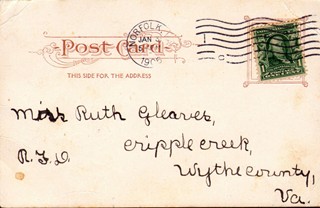 NORFOLK
JAN
190
Post Card
THIS SIDE FOR THE ADDRESS
Miss Ruth Gleaves,
R.F.D. Cripple creek,
Wythe county,
Va.